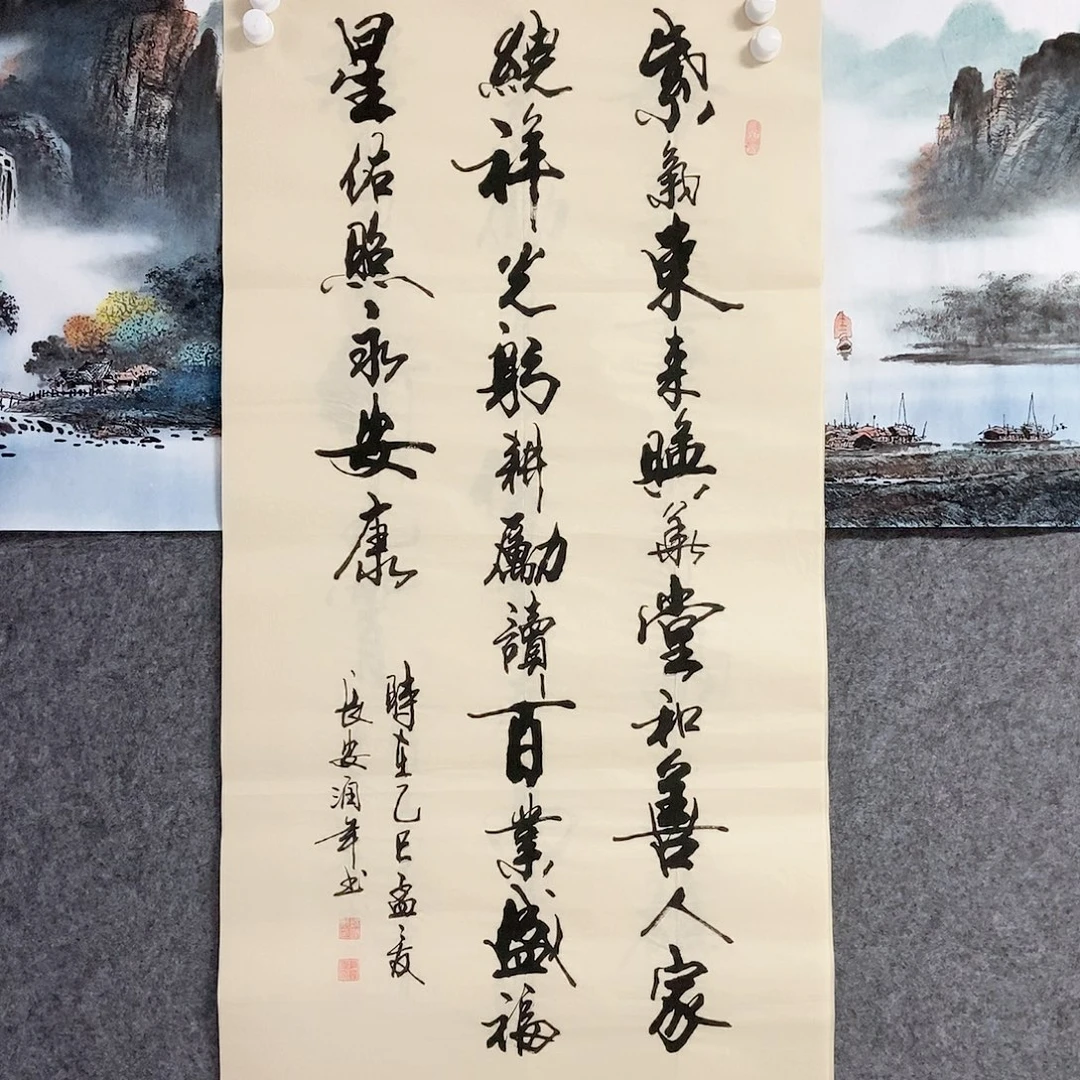 紫氣東來興華堂和善人家
繞祥光躬耕勵讀百業盛福
星佑照永安康
時在乙巳孟夏
長安潤年书